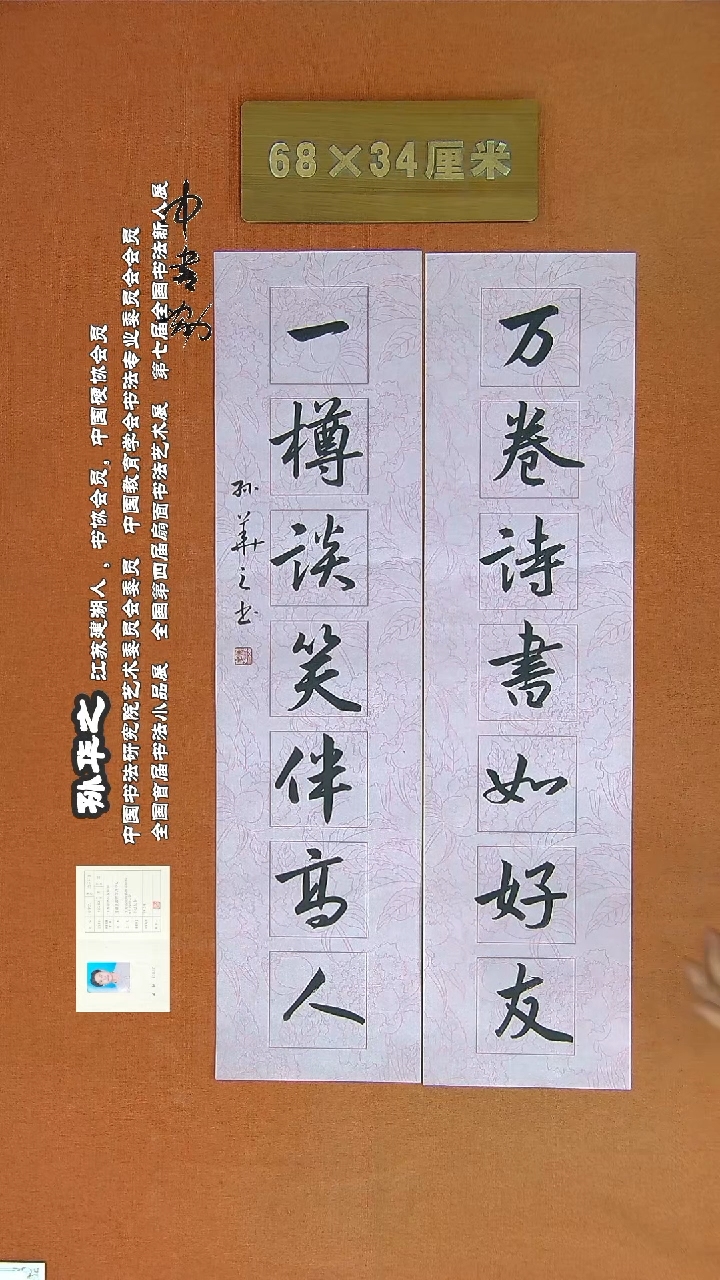 68×34厘米
万卷诗書如好友
一樽谈笑伴高人
孙華之书
孙华之
江苏建湖人，书协会员，中国硬协会员
中国书法研究院艺术委员会委员 中国教育学会书法专业委员会会员
全国首届书法小品展 全国第四届扇面书法艺术展 第七届全国书法新人展